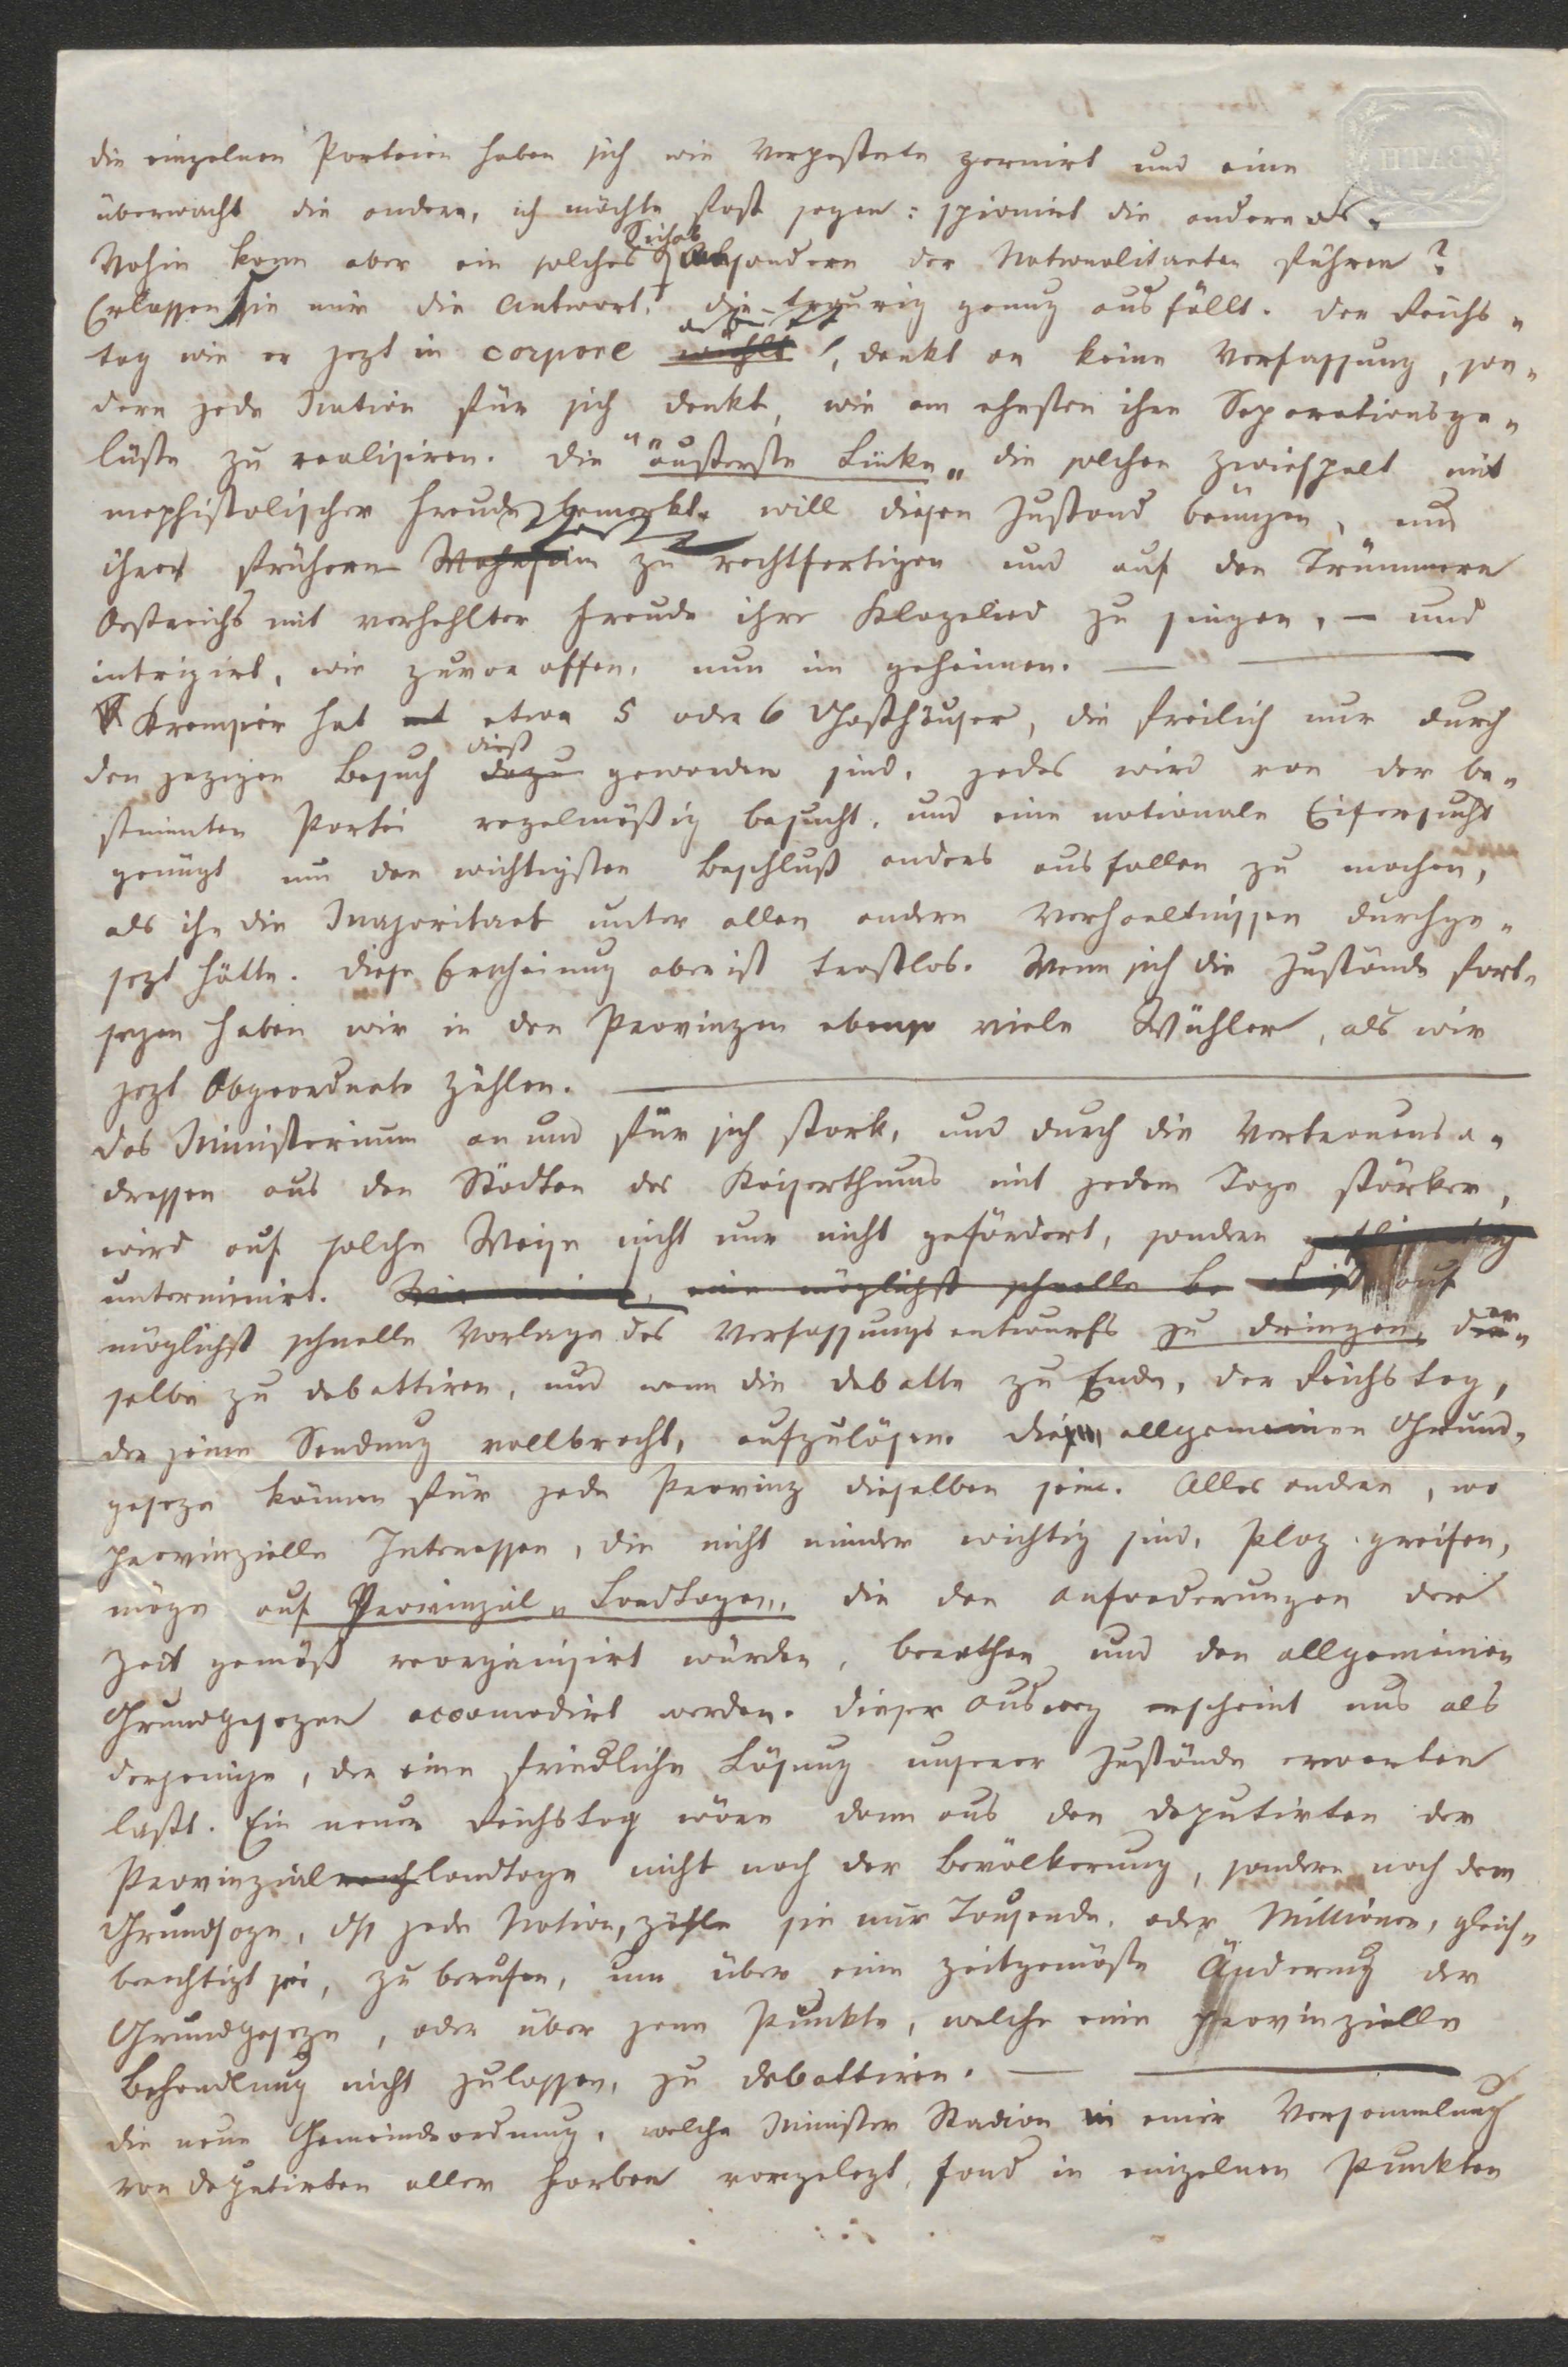 BATH
die einzelnen Parteien haben sich wie Verpestete zernirt und eine
überwacht die andere, ich möchte fast sagen: spionirt die andere aus.
Wohin kann aber ein solches Sichab sondern der Nationalitaeten führen?
Erlassen Sie mir die Antwort, die traurig genug ausfällt. Der Reichs„
tag wie er jezt in corpore, denkt an keine Verfassung, son„
dern jede Nation für sich denkt, wie am ehesten ihre Separationsge„
lüste zu realisiren. Die "äußerste Linke„ die solchen Zwiespalt mit
mephistolischer Freude bemerkt, will diesen Zustand benüzen, um
ihren frühern Wahnsinn zu rechtfertigen und auf den Trümmern
Oestreichs mit verhehlter Freude ihre Klagelied zu singen, – und
intrigirt, wie zuvor offen, nun im geheimen. —
Kremsier hat etwa 5 oder 6 Gasthäuser, die freilich nur durch
den jezigen Besuch dieß geworden sind, jedes wird von der be„
stimmten Partei regelmäßig besucht, und eine nationale Eifersucht
genügt um den wichtigsten Beschluß anders ausfallen zu machen,
als ihn die Majoritaet unter allen andern Verhaeltnissen durchge„
sezt hätte. Diese Erscheinung aber ist trostlos. Wenn sich die Zustände fort„
sezen haben wir in den Provinzen ebenso viele Wühler, als wir
jezt Abgeordnete zählen. —
Das Ministerium an und für sich stark, und durch die Vertrauensa„
dressen aus den Städten des Kaiserthums mit jedem Tage stärker,
wird auf solche Weise nicht nur nicht gefördert, sondern
unterminirt. eine möglichst schnelle be auf
möglichst schnelle Vorlage des Verfassungsentwurfs zu dringen, den„
selbe zu debattiren, und wenn die Debatte zu Ende, der Reichstag,
der seine Sendung vollbracht, aufzulösen. Die allgemeinen Grund„
geseze können für jede Provinz dieselben sein. Alles andere, wo
provinzielle Interessen, die nicht minder wichtig sind, Plaz greifen,
möge auf Provinzial„Landtagen, die den Anforderungen der
Zeit gemäß reorganisirt würden, berathen und den allgemeinen
Grundgesezen accomodirt werden. Dieser Ausweg erscheint uns als
derjenige, der eine friedliche Lösung unserer Zustände erwarten
laßt. Ein neuer Reichstag wäre dann aus den Deputirten der
Provinziallandtage nicht nach der Bevölkerung, sondern nach dem
Grundsaze, daß jede Nation, zähle sie nur Tausende, oder Millionen, gleich„
berechtigt sei, zu berufen, um über eine zeitgemäße Änderung der
Grundgeseze, oder über jene Punkte, welche eine provinzielle
Behandlung nicht zulassen, zu debattiren. —
Die neue Gemeindeordnung, welche Minister Stadion in einer Versammlung
von Deputirten aller Farben vorgelegt, fand in einzelnen Punkten